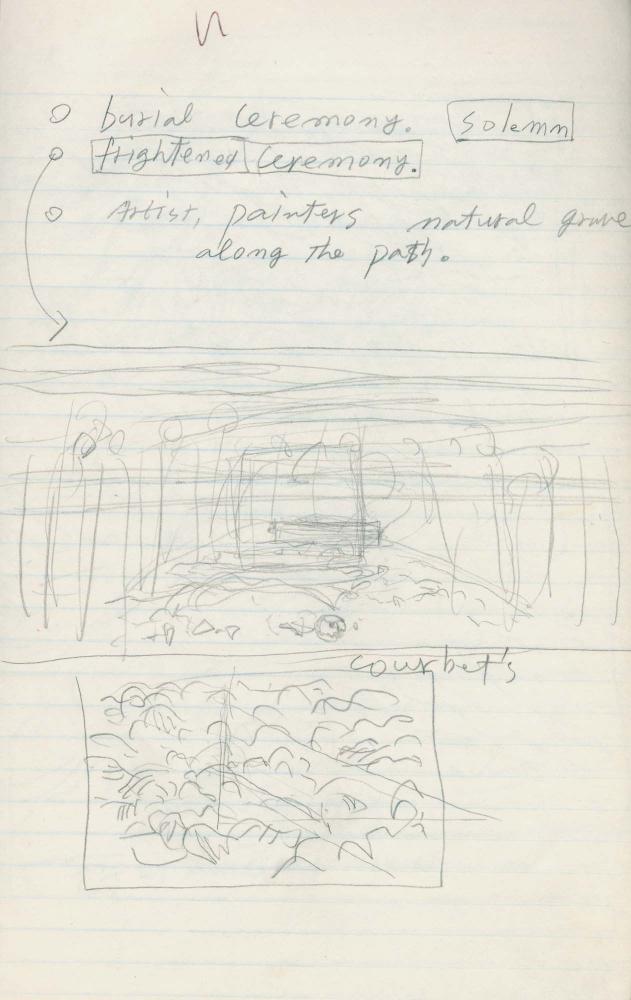 burial ceremony. solemn
frightened ceremony.
Artist, painters natural grave
along the path.
courbet's